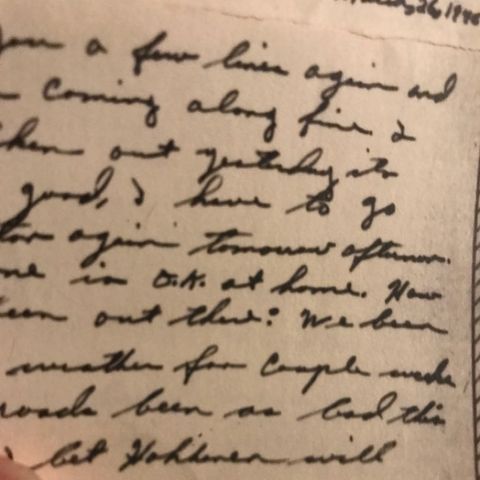 26, 194
you a few lines again and
coming along fine I
them out yesterday its
good, I have to go
again tomorrow afternoon.
is O.K. at home. How
been out there? We been
weather for couple weeks
roads been as bad this
bet will